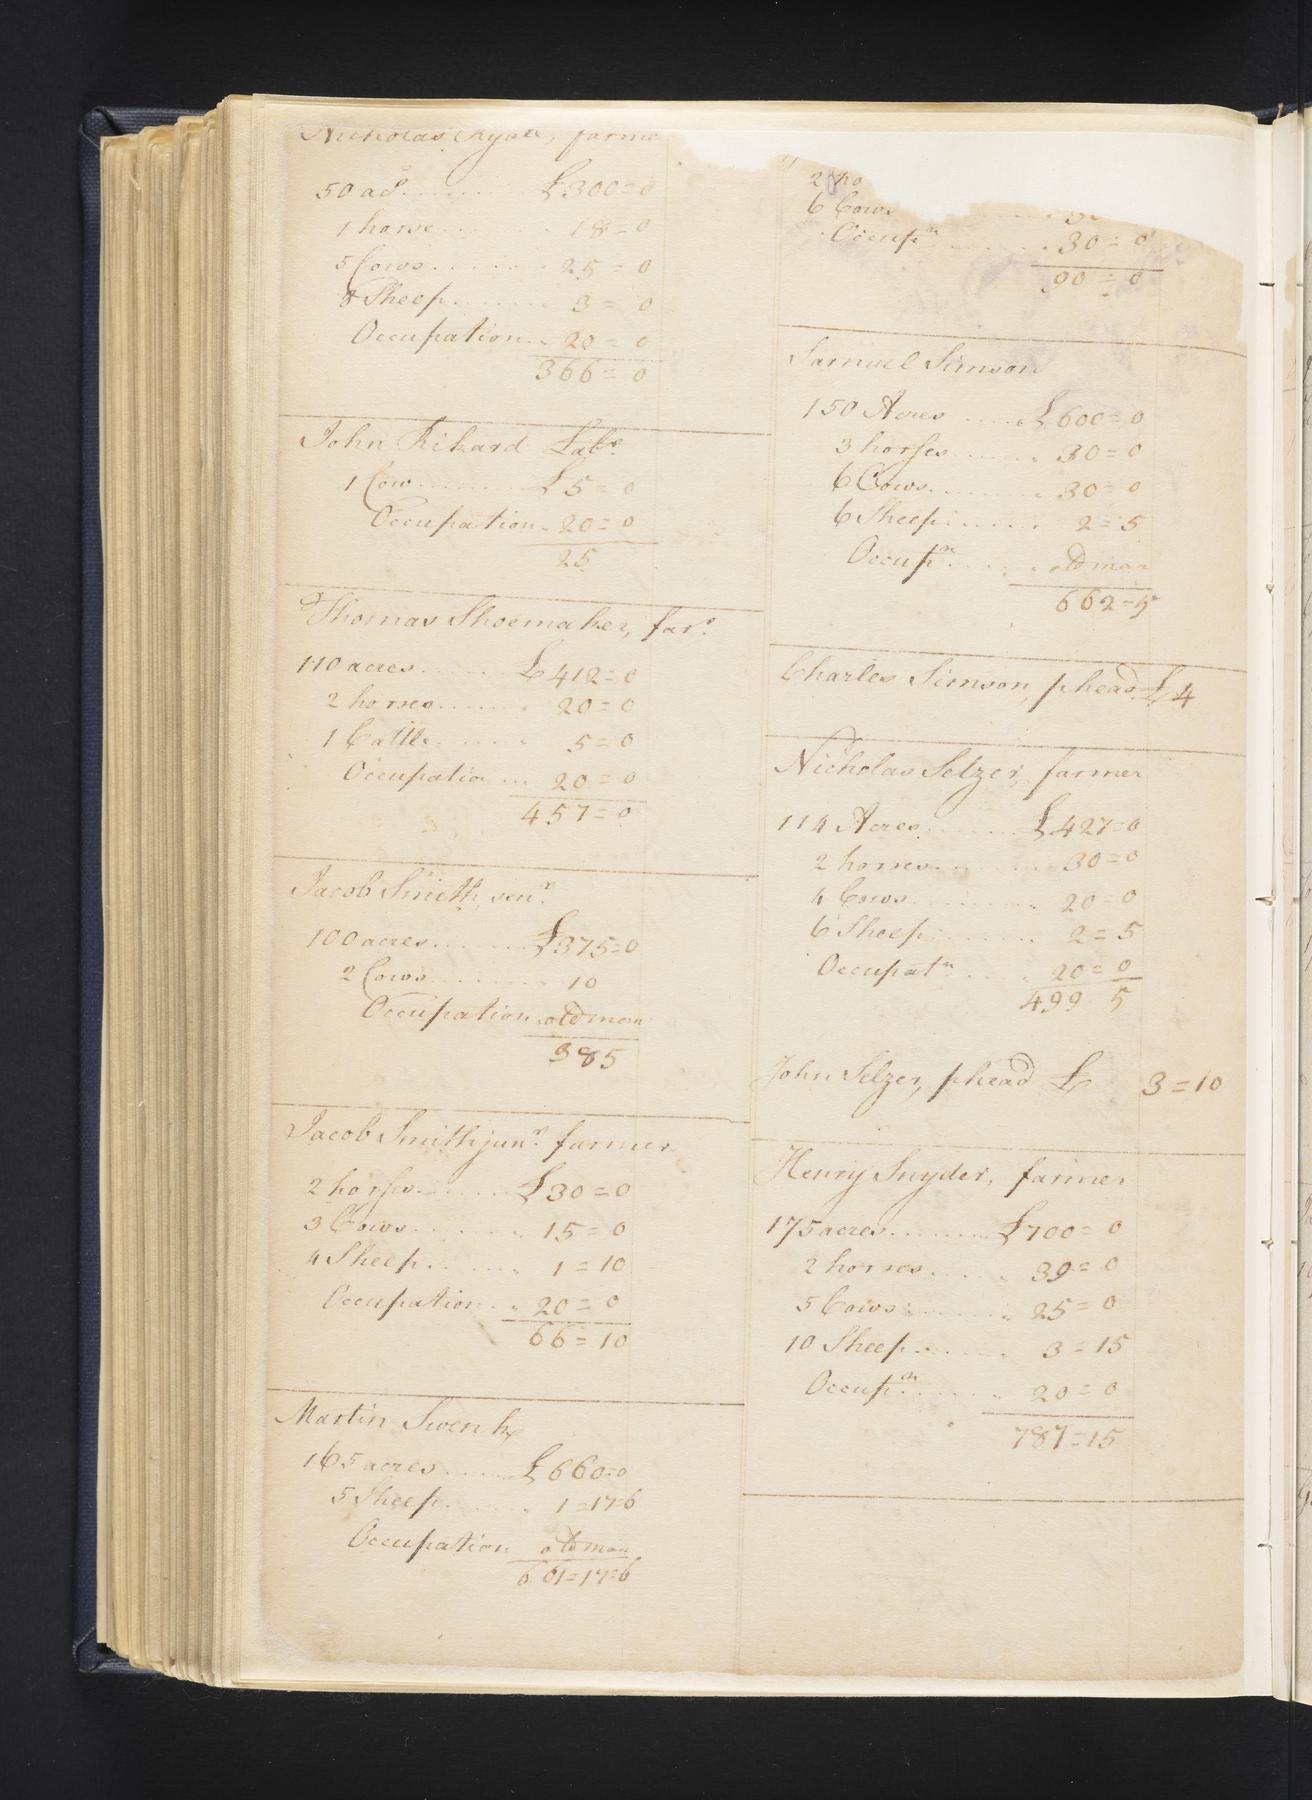 Nicholas farme
50 acs. £300=0
1 horse 18=0
5 Cows 25=0
8 Sheep 3=0
Occupation 20=0
366=0
John Rikard Labr
1 Cow £5=0
Occupation 20=0
25
Thomas Shoemaker, farr
110 acres £412=0
2 horses 20=0
1 Cattle 5=0
Occupatio 20=0
457=0
Jacob Smith senr
100 acres £375=0
2 Cows 10
Occupation old man
385
Jacob Smith junr farmer
2 horses £30=0
3 Cows 15=0
4 Sheep 1=10
Occupation 20=0
66=10
Martin Swenk
165 acres £660=0
5 Sheep 1=17=6
Occupation old man
661=17=6
2 ho
6 Cows
Occupn 30=0
90=0
Samuel Simson
150 Acres £600=0
3 horses 30=0
6 Cows 30=0
6 Sheep 2=5
Occupn old man
662=5
Charles Simson, phead £4
Nicholas Selzer, farmer
114 Acres £427=0
2 horses 30=0
4 Cows 20=0
6 Sheep 2=5
Occupatn 20=0
499 5
John Selzer, phead £ 3=10
Henry Snyder, farmer
175 acres £700=0
2 horses 39=0
5 Cows 25=0
10 Sheep 3=15
Occupn 20=0
787=15